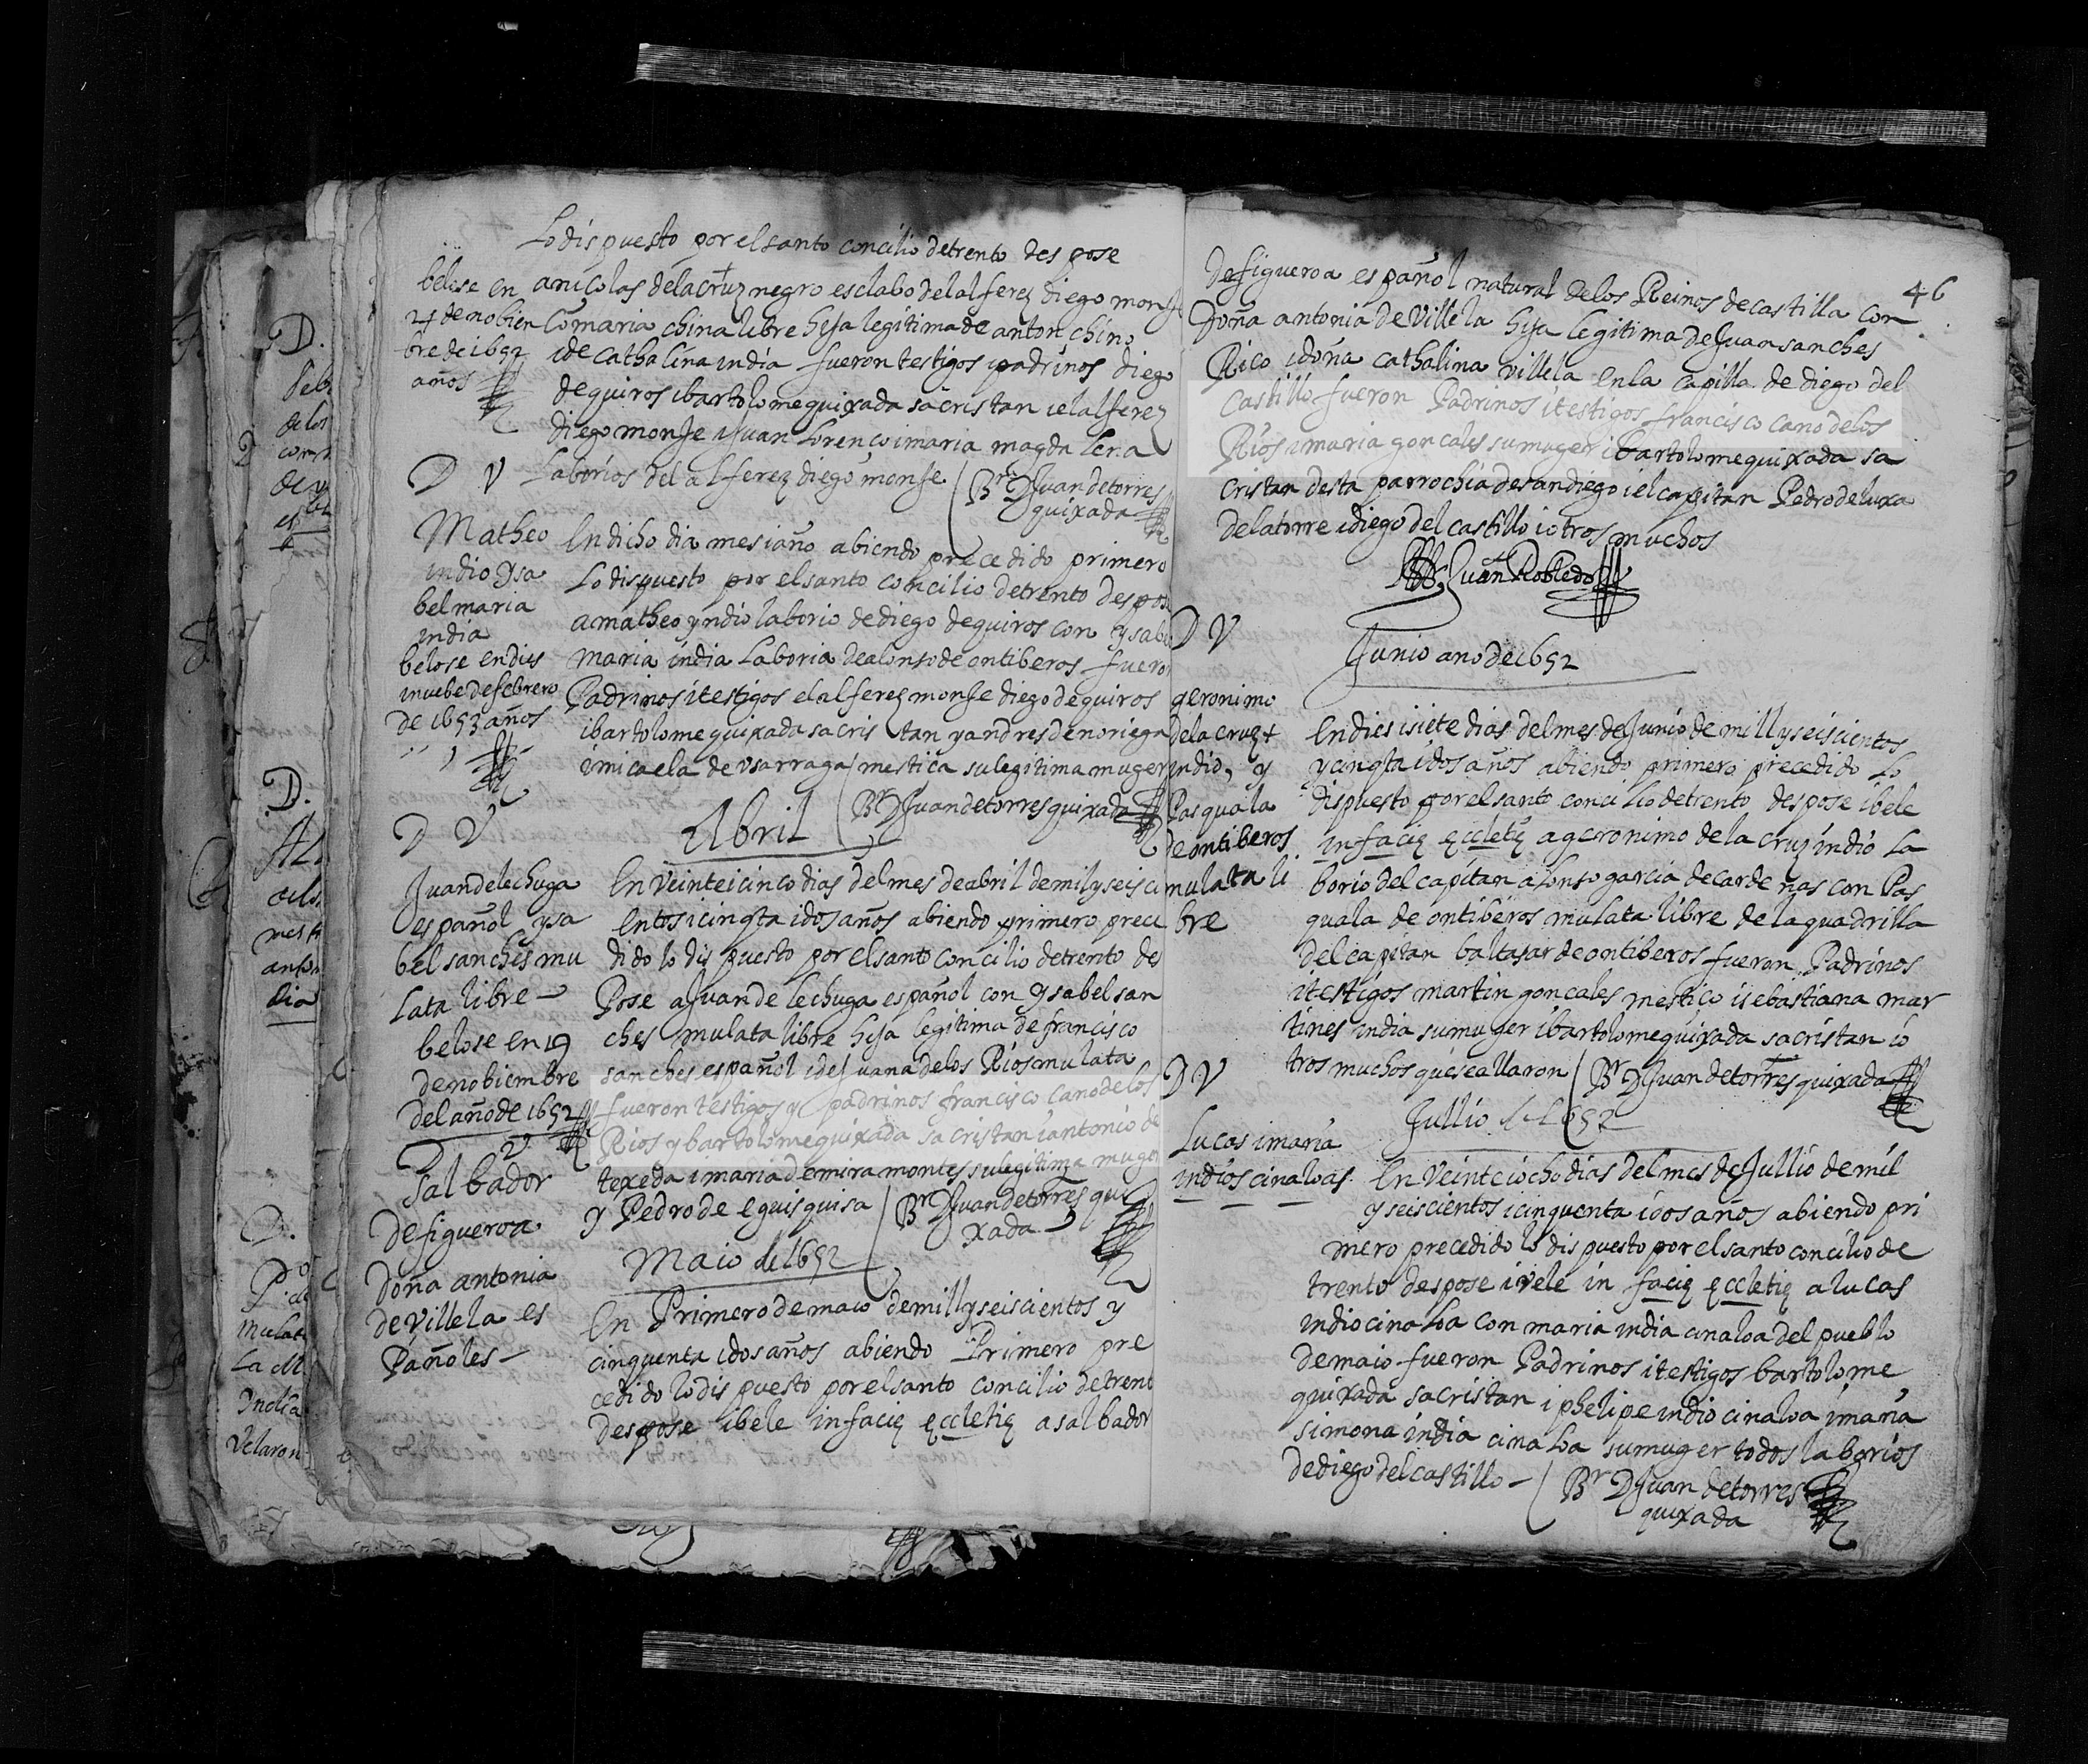 Lo dispuesto por el santo concilio de trento des pose
belose en
24 de nobiem
bre de 1652
años
a nicolas de la cruz negro esclabo del alferez diego monje
Co maria china libre hija legitima de anton chino
i de cathalina india fueron testigos i padrinos diego
de quiros i bartolome quixada sacristan i el alferez
diego monje i juan Lorenco i maria magdalena
Laborios del alferez diego monje
Br D Juan de torres
quixada
D V
Matheo
indio Ysa
bel maria
india
belose en dies
i nuebe de febrero
de 1653 años
En dicho dia mes i año abiendo precedido primero
Lo dispuesto por el santo concilio de trento despose
a matheo yndio laborio de diego de quiros con ysabel
maria india Laboria de alonso de ontiberos fueron
Padrinos i testigos el alferez monje diego de quiros
i bartolome quixada sacris tan y andres de noriega
i micaela de vsarraga mestica su legitima muger
Br D Juan de torres quixada
D V
Abril
Juan de lechuga
español ysa
bel sanches mu
lata libre
belose en 19
de nobiembre
del año de 1652
En Veinte i cinco dias del mes de abril de mil y seisci
entos i cinqta i dos años abiendo primero prece
dido lo dis puesto por el santo concilio de trento des
Pose a Juan de lechuga español con ysabel san
ches mulata libre hija legitima de francisco
sanches español i de Juana de los Rios mulata
fueron testigos y padrinos francisco cano de los
Rios y bartolome quixada sacristan i antonio de
texeda i maria de miramontes su legitima muger
y Pedro de eguisquisa
Br D Juan de torres qui
xada
D V
Maio de 1652
Salbador
de figueroa
Doña antonia
de Villela es
Pañoles
En Primero de maio de mill y seiscientos y
cinquenta i dos años abiendo Primero pre
cedido lo dis puesto por el santo concilio de trento
despose i bele in facie eccletie a salbador
46
de figueroa español natural de los Reinos de castilla con
Doña antonia de Villela hija legitima de Juan sanches
Rico i doña cathalina villela en la capilla de diego del
Castillo fueron Padrinos i testigos francisco cano de los
Rios i maria goncales su muger i bartolome quixada sa
cristan desta parrochia de san diego i el capitan Pedro de luxa
de la torre i diego del castillo i otros muchos
Juan Robledo
D V
Junio ano de 1652
geronimo
de la cruz
indio, y
Pasquala
de ontiberos
mulata li
bre
En dies i siete dias del mes de Junio de mill y seiscientos
y cinqta i dos años abiendo primero precedido Lo
dispuesto por el santo concilio de trento despose i bele
in facie eccletie a geronimo de la cruz indio la
borio del capitan alonso garcia de cardenas con Pas
quala de ontiberos mulata libre de la quadrilla
del capitan baltasar de ontiberos fueron Padrinos
i testigos martin goncales mestico i sebastiana mar
tines india su muger i bartolome quixada sacristan i o
tros muchos que se allaron
Br D Juan de torres quixada
D V
Jullio de 1652
Lucas i maria
indios cinaloas
En Veinte i ocho dias del mes de Jullio de mil
y seiscientos i cinquenta i dos años abiendo pri
mero precedido lo dis puesto por el santo concilio de
trento despose i vele in facie eccletie a lucas
indio cinaloa con maria india cinaloa del pueblo
de maio fueron Padrinos i testigos bartolome
quixada sacristan i phelipe indio cinaloa i maria
simona india cinaloa su muger todos laborios
de diego del castillo
Br D Juan de torres
quixada